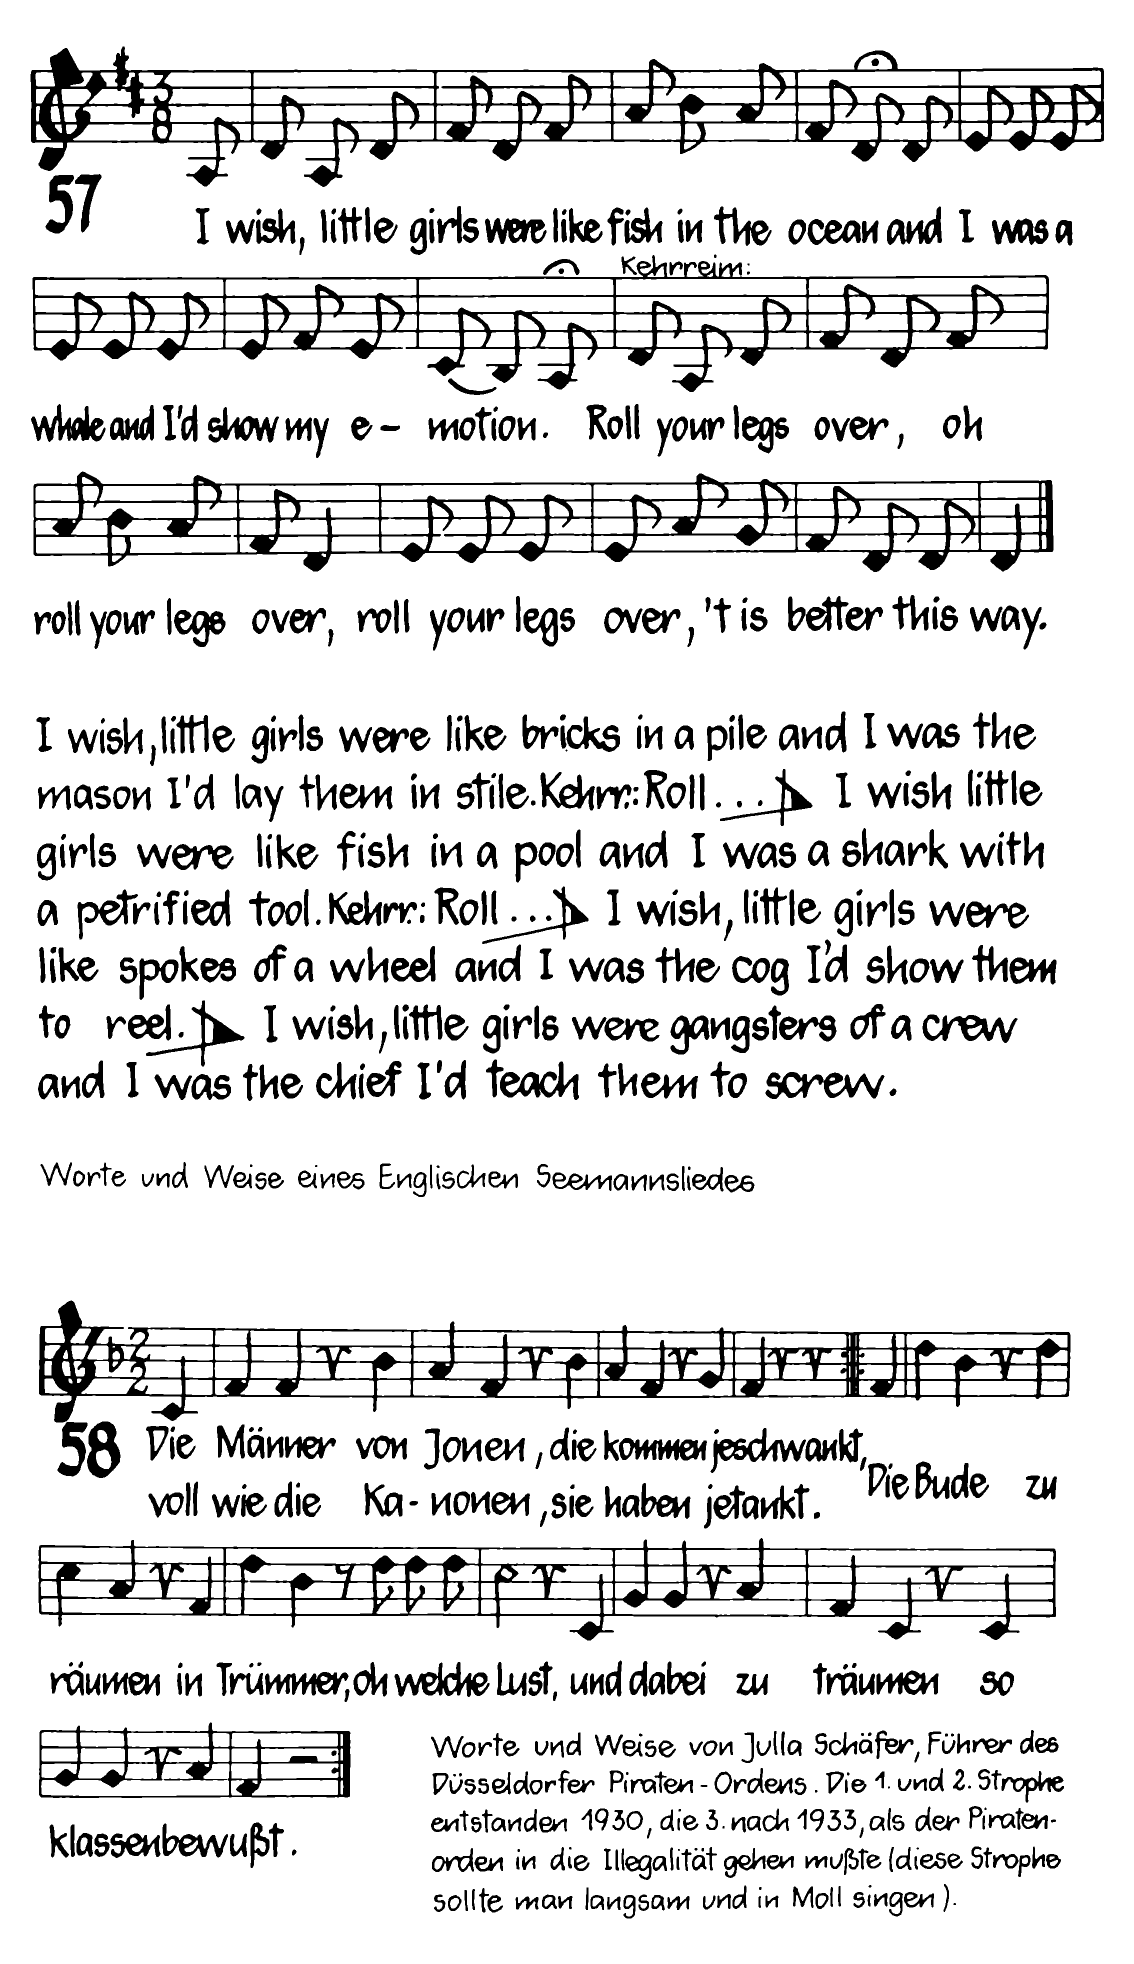 57
I wish, little girls were like fish in the ocean and I was a
Kehrreim:
whale and I'd show my e- motion. Roll your legs over, oh
roll your legs over, roll your legs over, 't is better this way.
I wish, little girls were like bricks in a pile and I was the
mason I'd lay them in stile. Kehrr.: Roll...
I wish little
girls were like fish in a pool and I was a shark with
a petrified tool. Kehrr.: Roll... I wish, little girls were
like spokes of a wheel and I was the cog I'd show them
to reel. I wish, little girls were gangsters of a crew
and I was the chief I'd teach them to screw.
Worte und Weise eines Englischen Seemannsliedes
58
Die Männer von Jonen, die kommen jeschwankt,
voll wie die Ka-nonen, sie haben jetankt. Die Bude zu
räumen in Trümmer, oh welche Lust, und dabei zu träumen so
klassenbewußt.
Worte und Weise von Julla Schäfer, Führer des
Düsseldorfer Piraten-Ordens. Die 1. und 2. Strophe
entstanden 1930, die 3. nach 1933, als der Piraten-
orden in die Illegalität gehen mußte (diese Strophe
sollte man langsam und in Moll singen).